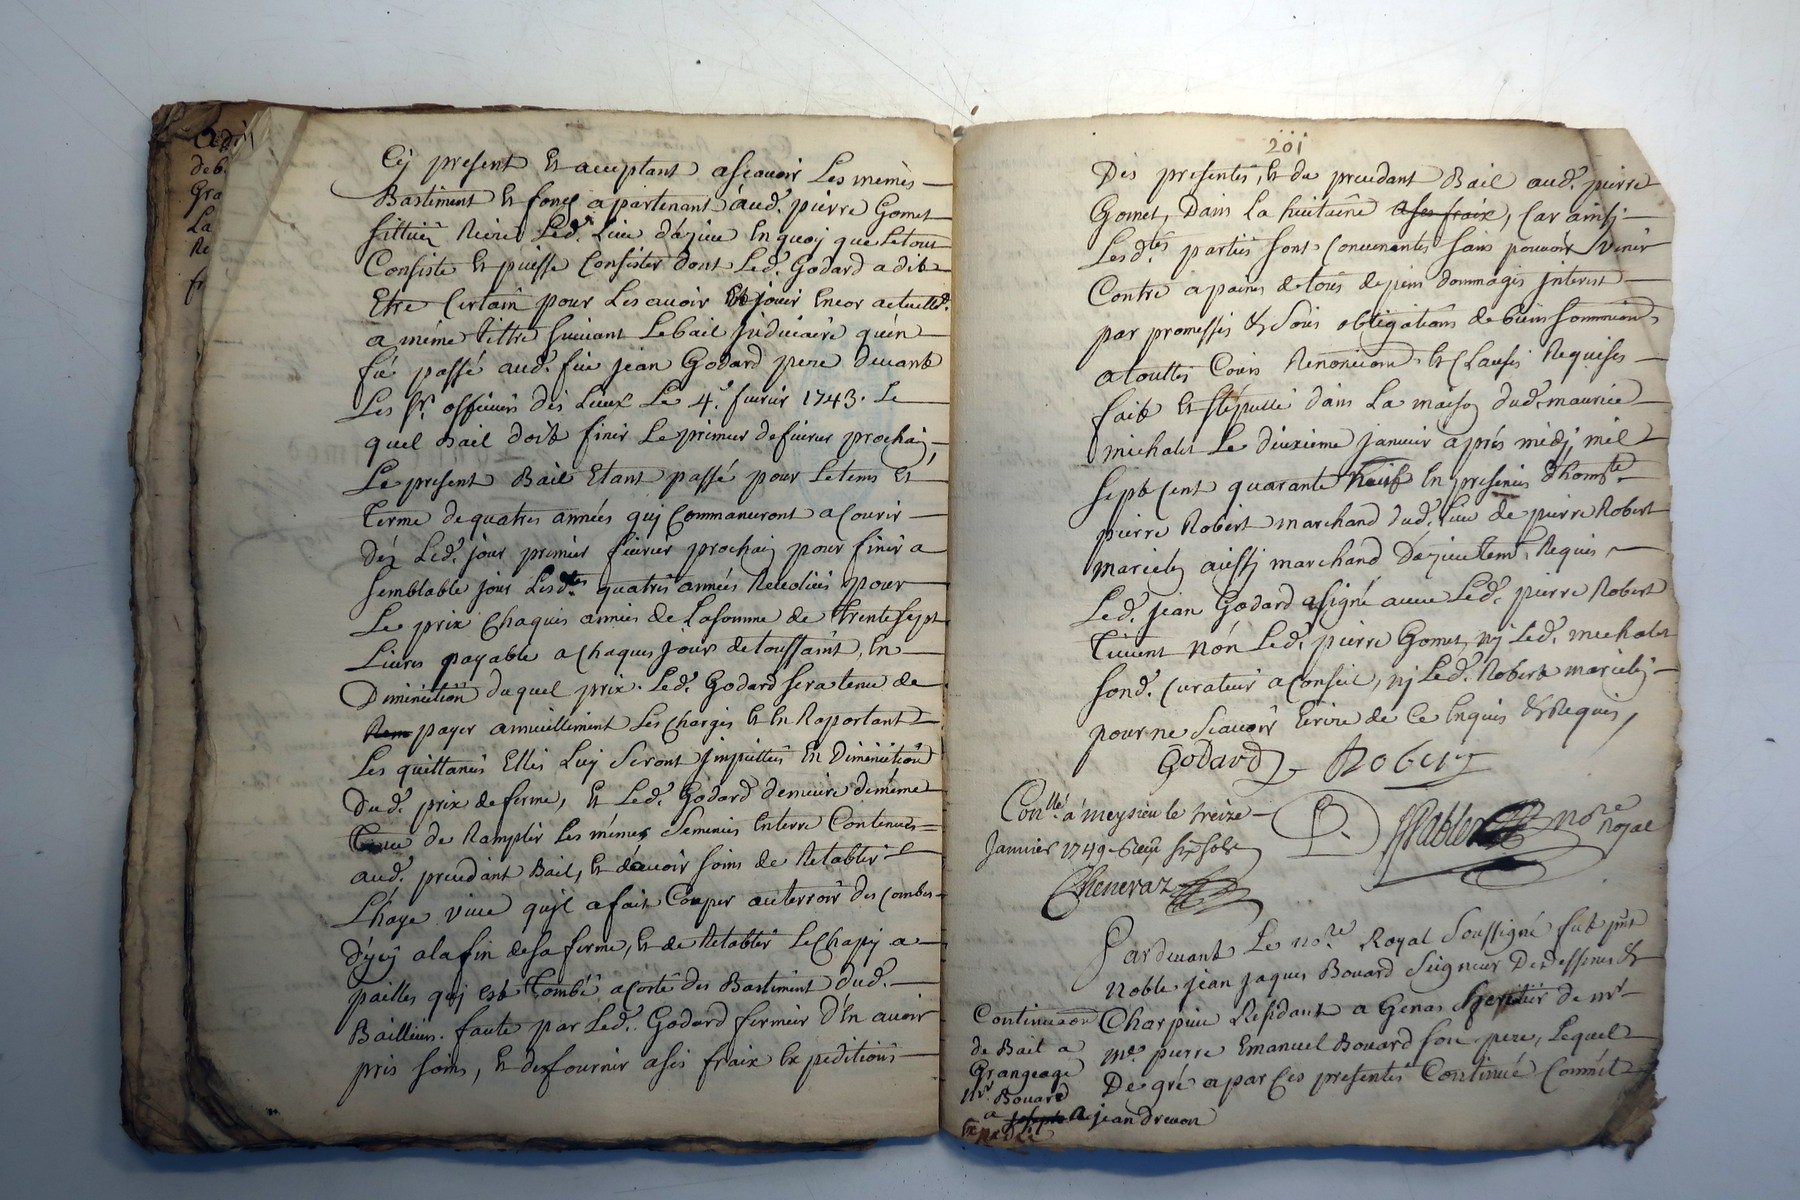 Cy present et acceptant ascavoir Les mêmes
Bastiment et fonds apartenant aud. pierre Gomet
sittués rière Led. Lieu dazieu En quoy que Le tout
Consiste et puisse Consister dont Led. Godard a dit
Etre Certain pour Les avoir et jouir Encor actuellt.
a même tittre suivant Le bail judiciaire qu'en
fû passé aud. feu jean Godard pere devant
Les Srs officiers des Lieux Le 4e. fevrier 1743. Le
quel Bail doit finir Le premier de fevrier prochain,
Le present Bail Etant passé pour Le tems Et
Terme de quatres années qui Commanceront a Courir
Dez Led. jour premier fevrier prochain pour finir a
semblable jour Lesdtes quatres années Revolues pour
Le prix Chaques années de La somme de Trente sept
Livres payable a Chaques jour de toussaint, En
Diminution duquel prix. Led. Godard sera tenu de
payer annuellement Les Charges Et En Raportant
Les quittances Elles Luy seront jmputtées En Diminution
Dud. prix de ferme, Et Led. Godard demeure de même
Tenu de Ramplir Les mêmes semences En terre Contenues
aud. precedant Bail, Et davoir soins de Retablir
L'haye vive qu'jl a fait Couper au terroir des Combes
D'ycy a la fin de sa ferme, Et de Retablir Le Chapy a
pailles qui est Tombé a Corté des Bastiment dud.
Bailleur. faute par Led. Godard fermier D'En avoir
pris soins, Et de fournir a ses fraix Expeditions
201
Des presentes, Et du precedant Bail aud. pierre
Gomet, Dans La huitaine a ses fraix, Car ainsj
Lesdtes parties sont Convenantes sans pouvoir venir
Contre a paines de tous depens dommages jnterest
par promesses & sous obligations de biens soummions
a touttes Cours Renonciaons Et Clauses Requises
fait Et stepullé dans La maison dud. maurice
michalet Le deuxieme janvier après midj mil
sept Cent quarante neuf En presences d'homte
pierre Robert marchand dud. Lieu de pierre Robert
mariclej aussj marchand Dazieu tem. Requis
Led. jean Godard a signé avec Led. pierre Robert
Tiement Nón Led. pierre Gomet, nj Led. michalet
sond. Curateur a Conseil, nj Led. Robert mariclej
pour ne scavoir Ecrire de Ce Enquis & Requis,
Godard Robert
Conllé. á meysieu le treize
Janvier 1749 Reçu six sols
Cheneraz
nore royal
Par devant Le nore. Royal soussigné fut pnt
Noble jean jaques Bouard seigneur Des Essines &
Charpieu Residant a Genas heritier de mr
me. pierre Emanuel Bouard son pere, Lequel
De gré a par Ces presentes Continué Comme
Continuaon
de Bail a
Grangeage
Mr. Bouard
a jean drevon
Expedié